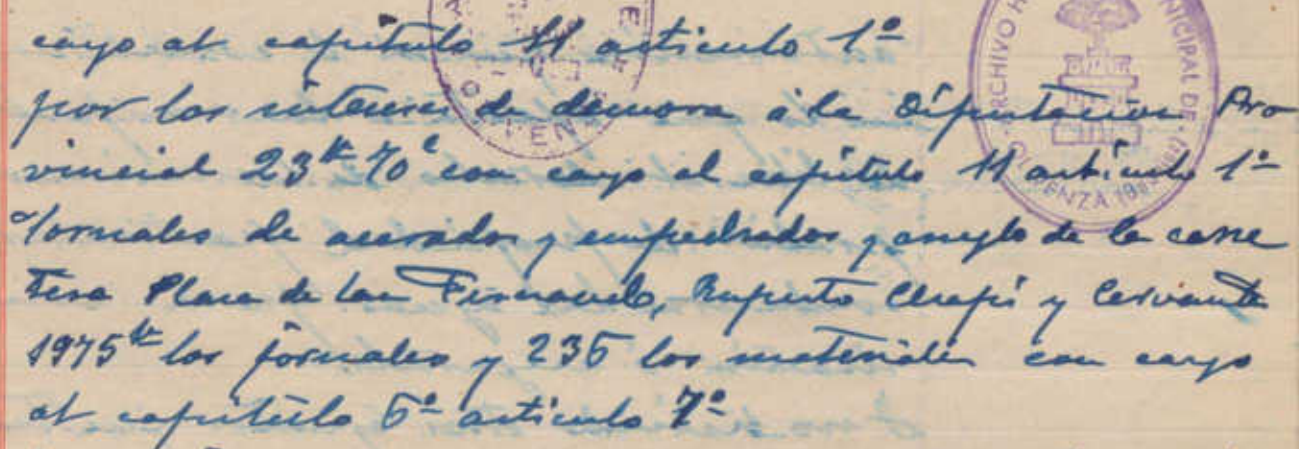 cargo al capitulo 11 articulo 1º
por los intereses de demora á la Diputacion Pro
vincial 23 70 con cargo al capitulo 11 articulo 1º
Jornales de acerados y empedrados y arreglo de la carre
tera Plaza de San Fernando, Ruperto Chapí y Cervante
1975 los jornales y 235 los materiales con cargo
al capitulo 6º articulo 7º
ARCHIVO H NICIPAL DE